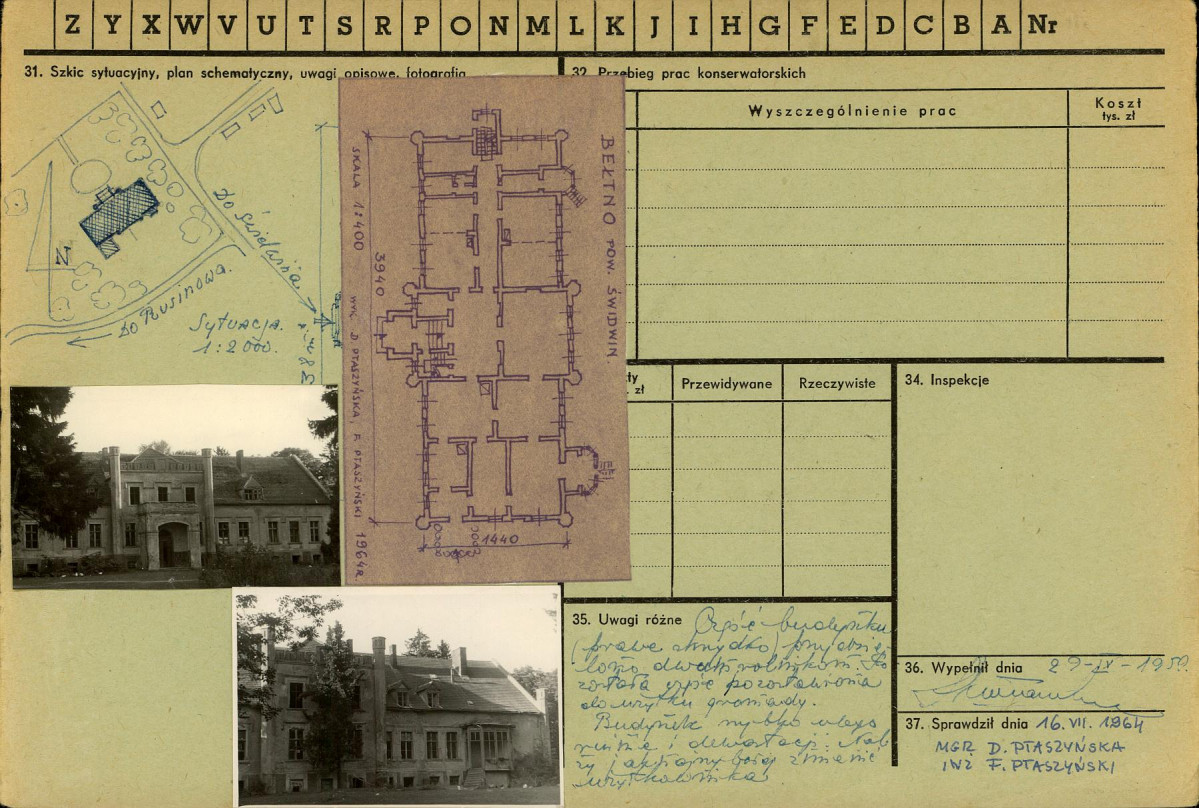 Z Y X W V U T S R P O N M L K J I H G F E D C B A Nr
31. Szkic sytuacyjny, plan schematyczny, uwagi opisowe, fotografia
Do Świdwina.
Do Rusinowa.
N
Sytuacja.
1:2000.
BEŁTNO POW. ŚWIDWIN.
SKALA 1:400
3940
WYK. D. PTASZYŃSKA, F. PTASZYŃSKI 1964R.
1440
32. Przebieg prac konserwatorskich
Wyszczególnienie prac
Koszt
tys. zł
zł
Przewidywane
Rzeczywiste
34. Inspekcje
35. Uwagi różne Część budynku
(prawe skrzydło) przydzie-
lono dwum rolnikom. Po
została część pozostawiona
do użytku gromady.
Budynek szybko ulega
i dewastacji.
zmienić
użytkownika.
36. Wypełnił dnia 29-IX-195
37. Sprawdził dnia 16.VII.1964
MGR D. PTASZYŃSKA
INŻ F. PTASZYŃSKI